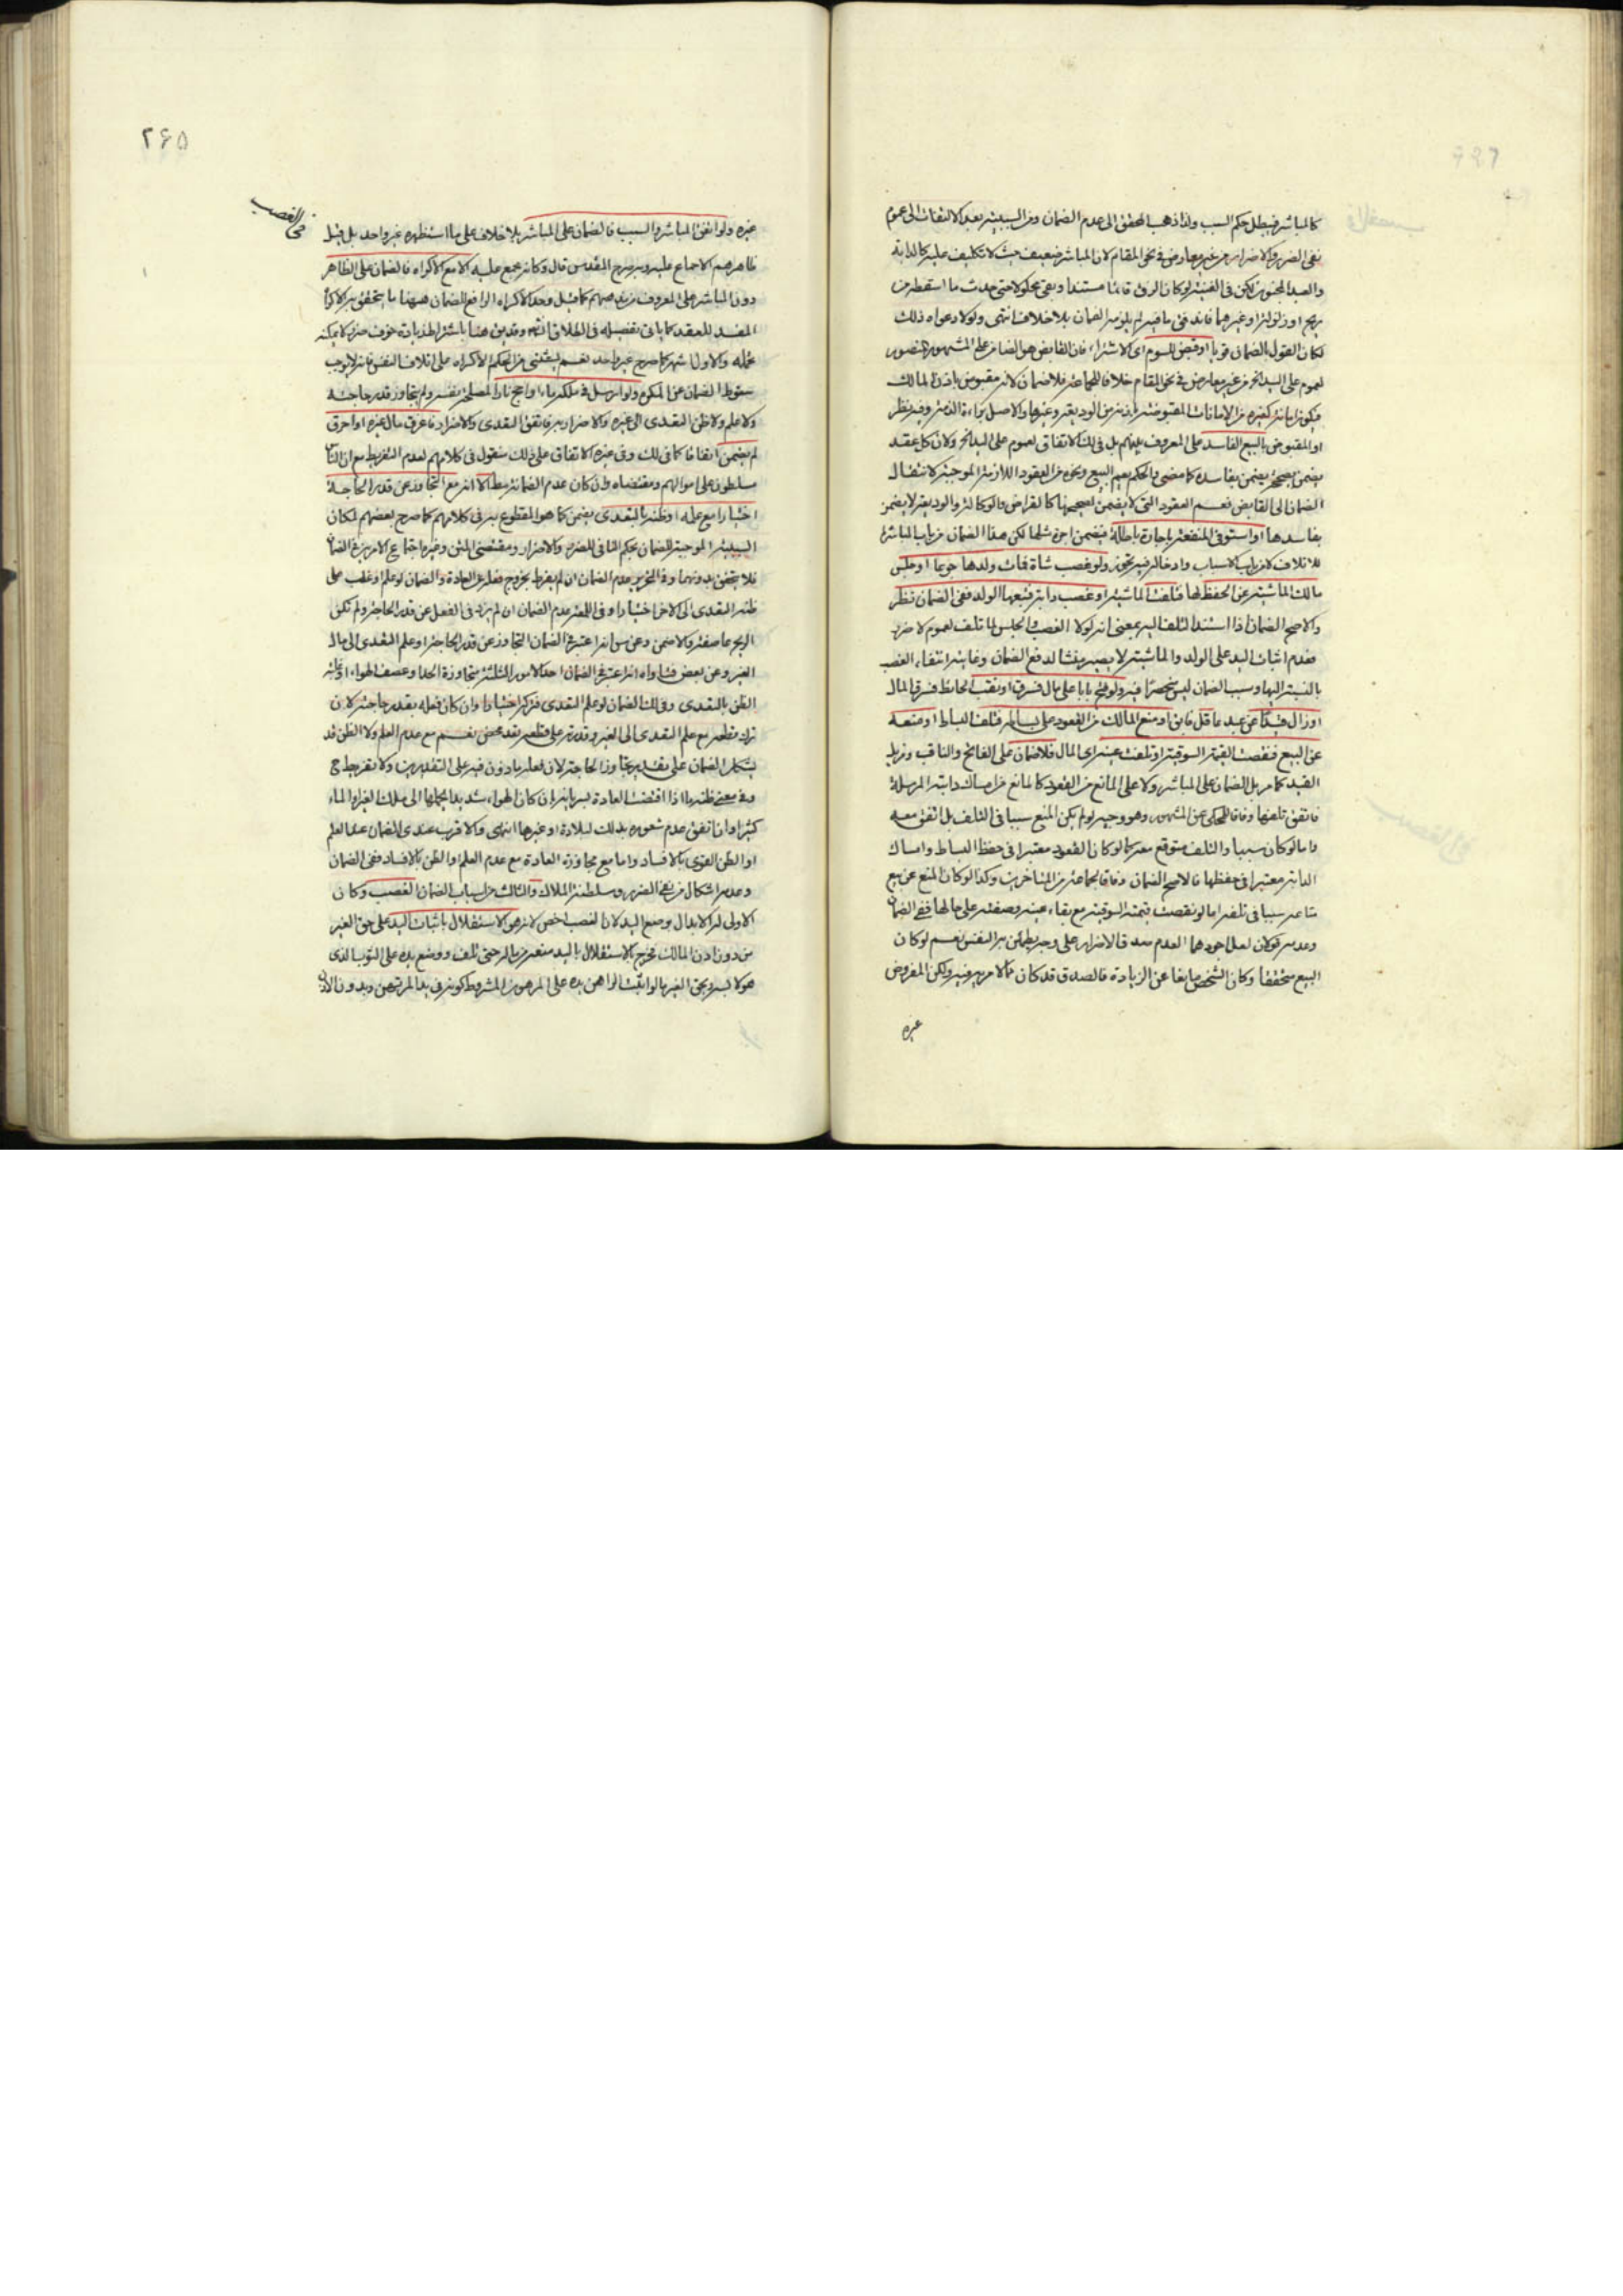 كالمباشر فيبطل حكم السبب ولذا ذهب المحقق الى عدم الضمان ومن السببية بعد الالتفات الى عموم
نفى الضرر والاضرار من غير معارض فى نحو المقام لان المباشر ضعيف حيث لا تكليف عليه كالدابة
والعبد المجنون لكن فى الغنية لو كان الزق قائما مستندا وبقى محلولا حتى حدث ما اسقطه من
ريح او زلزلة او غيرهما فاندفق ما فيه لم يلزمه الضمان بلا خلاف انتهى ولولا دعواه ذلك
لكان القول بالضمان قويا او قبض بالسوم اى للاشتراء فان القابض هو الضامن على المشهور المنصور
لعموم على اليد الخ من غير معارض فى نحو المقام خلافا لجماعة فلا ضمان لانه مقبوض باذن المالك
فيكون امانة كغيره من الامانات المقبوضة باذنه من الوديعة وغيرها والاصل براءة الذمة وفيه نظر
او المقبوض بالبيع الفاسد على المعروف بينهم بل فى لك الاتفاق لعموم على اليد الخ ولان كل عقد
يضمن بصحيحه يضمن بفاسده كما مضى والحكم يعم البيع ونحوه من العقود اللازمة الموجبة لانتقال
الضمان الى القابض فعم العقود التى لا يضمن بصحيحها كالقراض والوكالة والوديعة لا يضمن
بفاسدها او استوفى المنفعة باجارة باطلة فيضمن اجرة مثلها لكن هذا الضمان من باب المباشرة
للاتلاف لا من باب الاسباب وادخاله فيه تجوز ولو غصب شاة فمات ولدها جوعا او حبس
مالك الماشية عن الحفظ لها فتلفت الماشية او غصب دابة فتبعها الولد ففى الضمان نظر
والاصح الضمان اذا استند التلف اليه بمعنى انه لولا الغصب والحبس لما تلف لعموم لا ضرر
فعدم اثبات اليد على الولد والماشية لا يصير منشا لدفع الضمان وغايته انتفاء الغصب
بالنسبة اليها وسبب الضمان ليس منحصرا فيه ولو فتح بابا على مال فسرق او نقب الحائط فسرق المال
او زال قيدا عن عبد عاقل فابق او منع المالك من القعود على بساطه فتلف البساط او منعه
عن البيع فنقصت القيمة السوقية او تلفت عينه اى المال فلا ضمان على الفاتح والناقب ومزيل
القيد كما مر بل الضمان على المباشر ولا على المانع من القعود كالمانع من امساك دابته المرسلة
فاتفق تلفها وفاقا للمحكى عن المشهور وهو وجيه لو لم يكن المنع سببا فى التلف بل اتفق معه
واما لو كان سببا والتلف متوقع معه كما لو كان القعود معتبرا فى حفظ البساط وامساك
الدابة معتبرا فى حفظها فالاصح الضمان وفاقا لجماعة من المتاخرين وكذا لو كان المنع عن بيع
متاعه سببا فى تلفه اما لو نقصت قيمته السوقية مع بقاء عينه وصفته على حالها ففى الضمان
وعدمه قولان لعل اجودهما العدم لعدم صدق الاضرار على وجه يطمئن به النفس نعم لو كان
البيع متحققا وكان الشخص مانعا عن الزيادة فالصدق قد كان مما لا مرية فيه ولكن المفروض
غيره
فى الغصب
٢۶۵
غيره ولو اتفق المباشر والسبب فالضمان على المباشر بلا خلاف على ما استظهره غير واحد بل قيل
ظاهرهم الاجماع عليه وبه صرح المقدس قال وكانه مجمع عليه الا مع الاكراه فالضمان على القاهر
دون المباشر على المعروف من مذهبهم كما قيل وحد الاكراه الرافع للضمان هيهنا ما يتحقق به الاكراه
المفسد للعقد كما ياتى تفصيله فى الطلاق انشه وقد يق هنا باشتراط زيادة خوف ضرر لا يمكنه
تحمله والاول اشهر كما صرح غير واحد نعم يستثنى من الحكم الاكراه على اتلاف النفس فانه لا يوجب
سقوط الضمان عن المكره ولو ارسل فى ملكه ماء او اجج نارا لمصلحة نفسه ولم يتجاوز قدر حاجته
ولا علم ولا ظن التعدى الى غيره والاضرار به فاتفق التعدى والاضرار فاغرق مال غيره او احرق
لم يضمن اتفاقا كما فى لك وفى غيره الاتفاق على ذلك منقول فى كلامهم لعدم التفريط مع ان الناس
مسلطون على اموالهم ومقتضاه وان كان عدم الضمان مطلقا الا انه مع التجاوز عن قدر الحاجة
اختيارا مع علمه او ظنه بالتعدى يضمن كما هو المقطوع به فى كلامهم كما صرح بعضهم لمكان
السببية الموجبة للضمان بحكم النافى للضرر والاضرار ومقتضى المتن وغيره اجتماع الامرين فى الضمان
فلا يتحقق بدونهما وفى التحرير عدم الضمان ان لم يفرط بخروج فعله عن العادة والضمان لو علم او غلب على
ظنه التعدى الى الاخر اختيارا وفى اللمعة عدم الضمان ان لم يزد فى الفعل عن قدر الحاجة ولم تكن
الريح عاصفة والا ضمن وعن س انه اعتبر فى الضمان التجاوز عن قدر الحاجة او علم التعدى الى مال
الغير وعن بعض فتاواه انه اعتبر فى الضمان احد الامور الثلثة متجاوزة الحد او عصف الهواء او غلبة
الظن بالتعدى وفى لك الضمان لو علم التعدى فتركه اختيارا وان كان فعله بقدر حاجته لان
ترك قطعه مع علم التعدى الى الغير وقدرته على قطعه تعد محض نعم مع عدم العلم ولا الظن قد
يشكل الضمان على تقدير تجاوز الحاجة لان فعله ماذون فيه على التقديرين ولا تفريط ح
وفى معنى ظنه ما اذا اقتضت العادة بسريانه بان كان الهواء شديدا يحملها الى ملك الغير او الماء
كثيرا وان اتفق عدم شعوره بذلك لبلادة او غيرها انتهى والاقرب عندى الضمان عند العلم
او الظن القوى بالافساد واما مع مجاوزة العادة مع عدم العلم او الظن بالافساد ففى الضمان
وعدمه اشكال من نفى الضرر وسلطنة الملاك والثالث من اسباب الضمان الغصب وكان
الاولى له الابدال بوضع اليد لان الغصب اخص لانه هو الاستقلال باثبات اليد على حق الغير
من دون اذن المالك فخرج بالاستقلال باليد منعه من ماله حتى تلف ووضع يده على الثوب الذى
هو لابسه وبحق الغير ما لو اثبت الراهن يده على المرهون المشروط كونه فى يد المرتهن وبدون الاذن